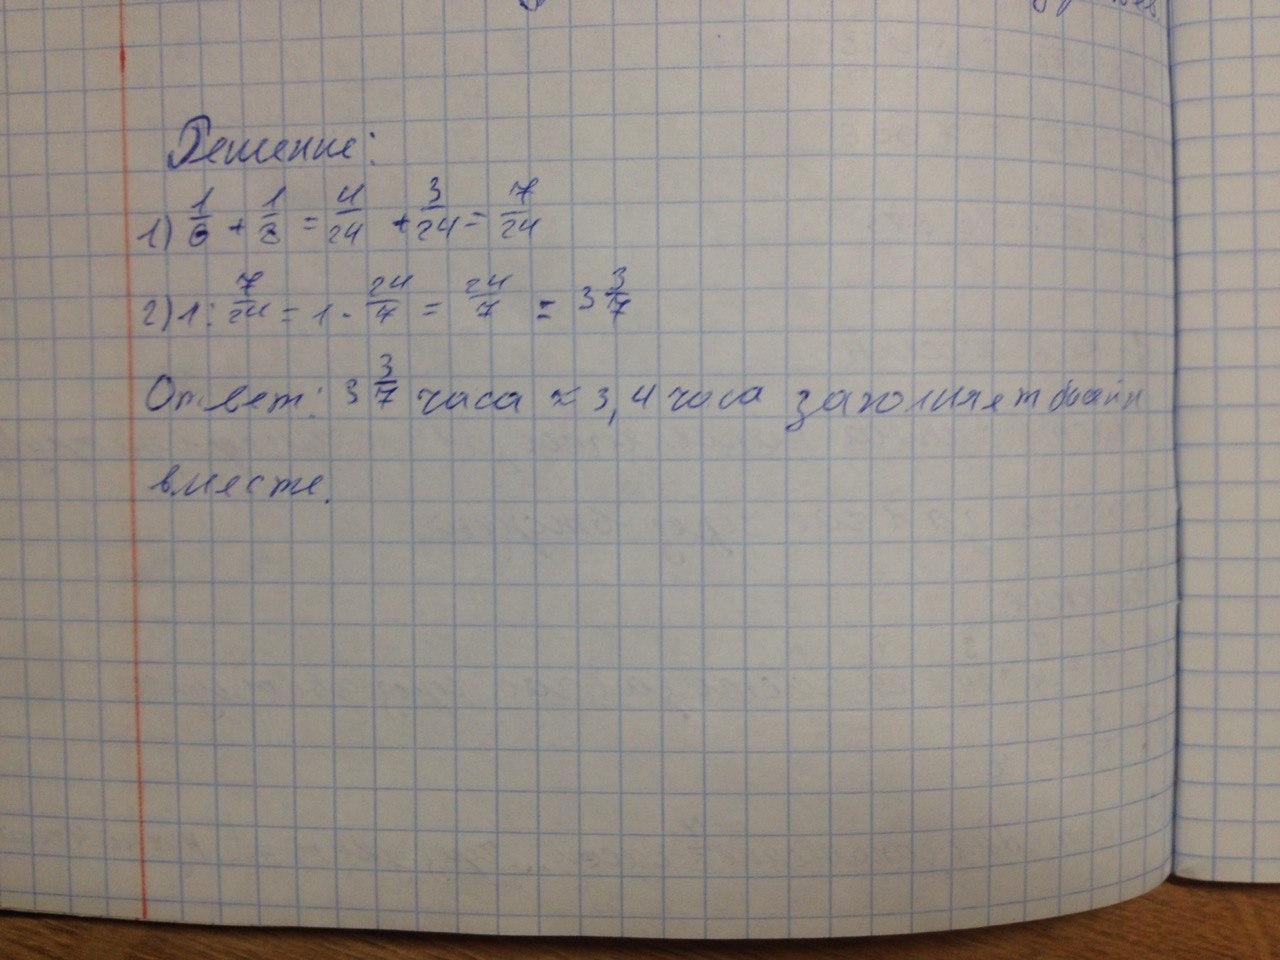 Решение:
1) 1/6 + 1/8 = 4/24 + 3/24 = 7/24
2) 1 : 7/24 = 1 · 24/7 = 24/7 = 3 3/7
Ответ: 3 3/7 часа ≈ 3,4 часа заполняет
вместе.